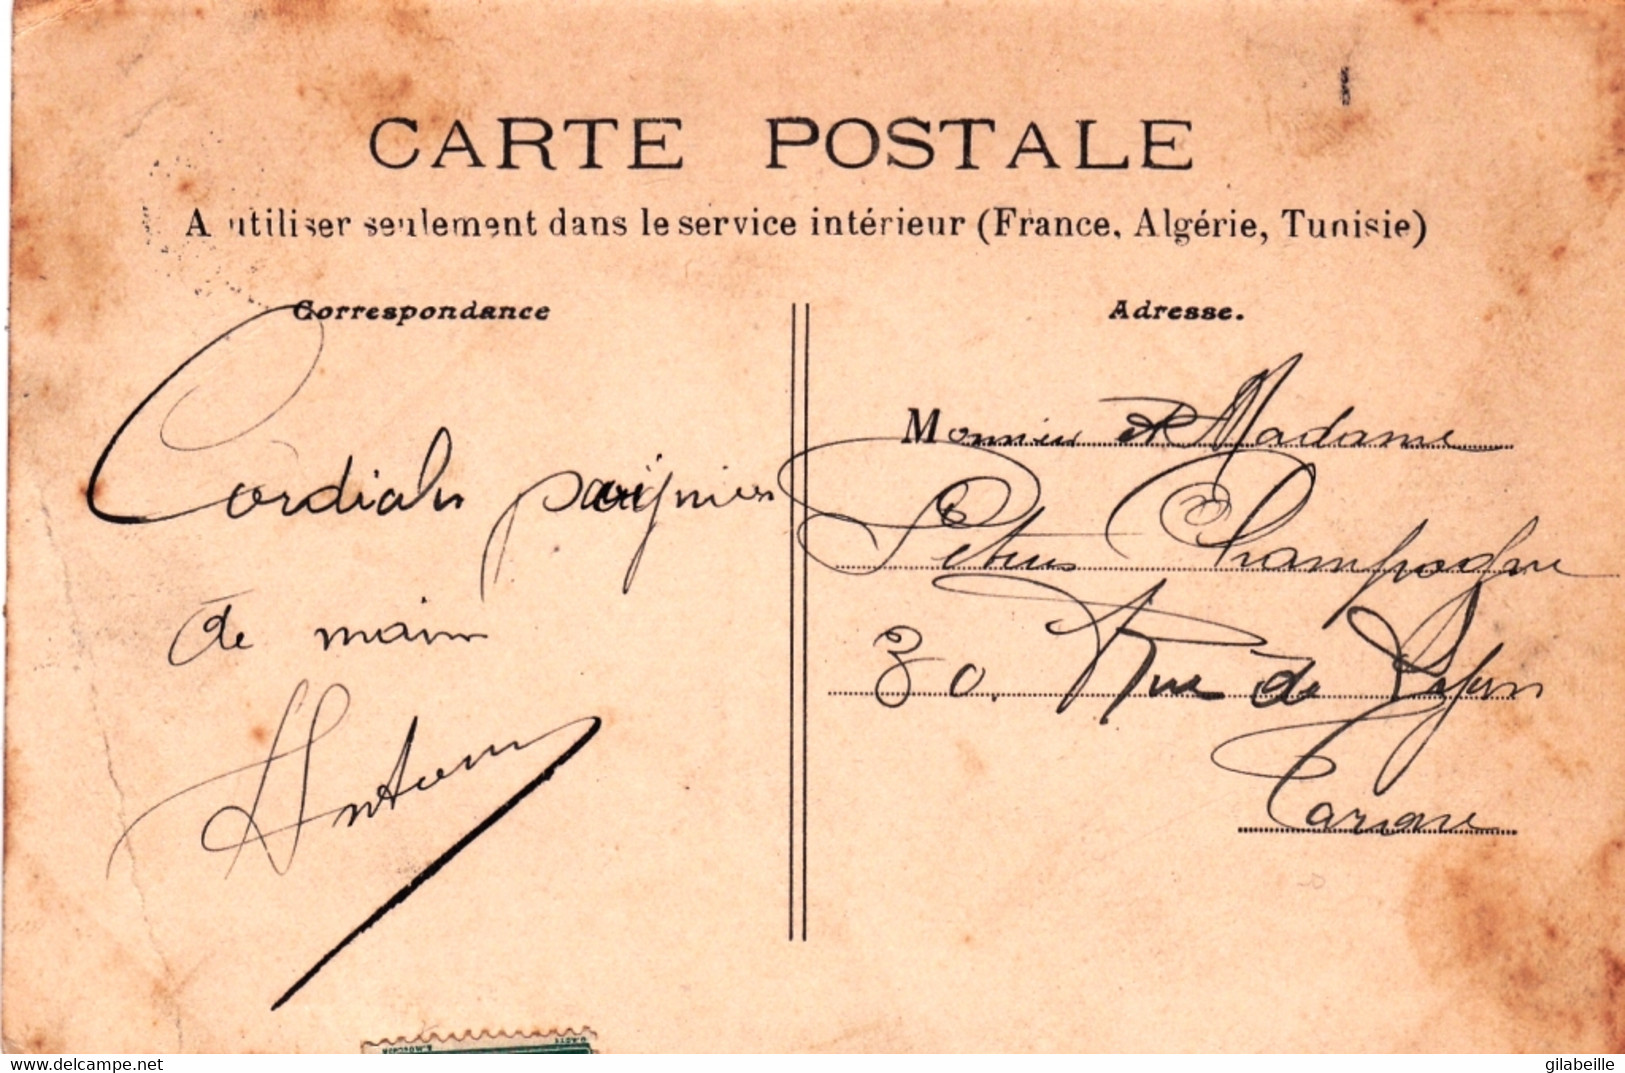 CARTE POSTALE
A utiliser seulement dans le service intérieur (France, Algérie, Tunisie)
Correspondance
Cordiales poignées
de main
Antoine
Adresse.
Monsieur et Madame
Petrus Champagne
30. Rue de Lyon
Tarare
www.delcampe.net
gilabeille